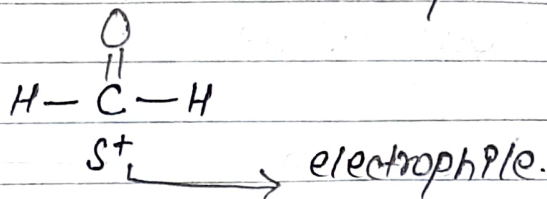 O
||
H — C — H
S+ → electrophile.